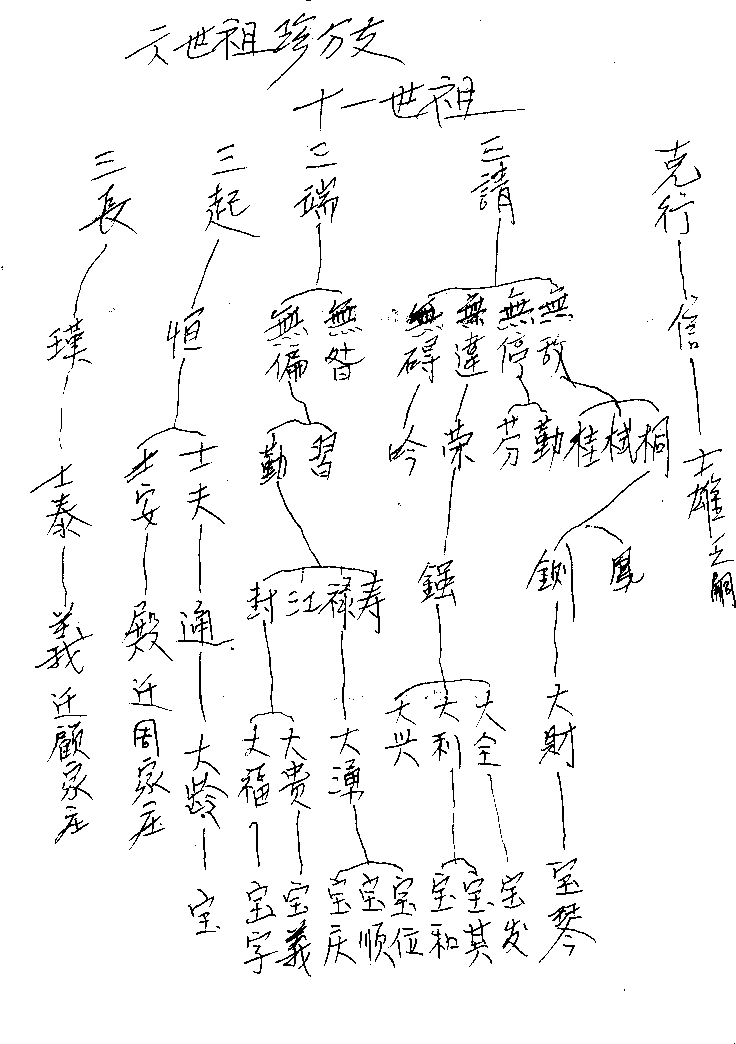 六世祖珍分支
十一世祖
克行
三請
三端
三起
三長
信
無敌
無停
無違
無碍
無昝
無偏
恒
瑾
士雄
乏嗣
桐
桂
勤
芬
荣
吟
習
勤
士夫
士安
士泰
鳳
鎺
寿
禄
江
封
通
殿
迁周家庄
義
迁顧家庄
大財
大全
大利
大兴
大湧
大貴
大福
大龄
宝琴
宝发
宝其
宝和
宝位
宝顺
宝庆
宝義
宝字
宝